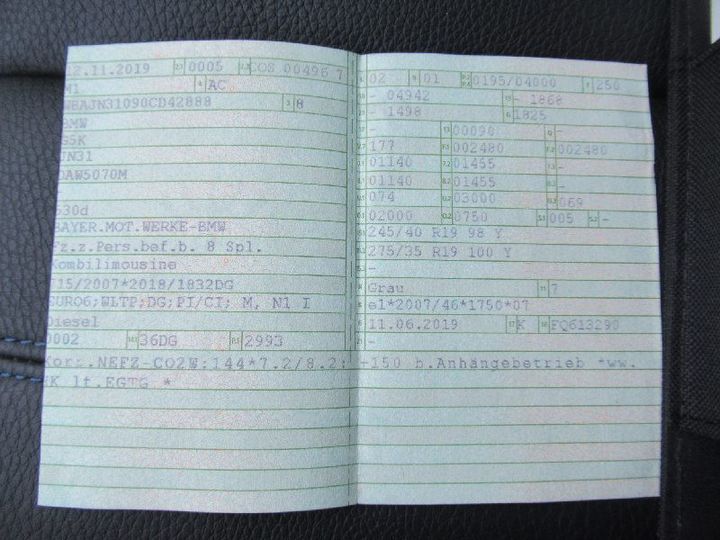 12.11.2019 0005 COS 00496 7
M1 AC
WBAJN31090CD42888 8
BMW
G5K
JN31
DAW5070M
530d
BAYER.MOT.WERKE-BMW
Fz.z.Pers.bef.b. 8 Spl.
Kombilimousine
715/2007*2018/1832DG
EURO6;WLTP;DG;PI/CI; M, N1 I
Diesel
0002 36DG 2993
Korr.NEFZ-CO2W:144*7.2/8.2:
K lt.EGTG *
02 01 0195/04000 250
- 04942 - 1868
- 1498 1825
- 00090 -
177 002480 002480
01140 01455 -
01140 01455 -
074 03000 069
02000 0750 005 -
245/40 R19 98 Y
275/35 R19 100 Y
-
Grau 7
e1*2007/46*1750*07
11.06.2019 K FQ613290
-150 b.Anhängebetrieb *ww.